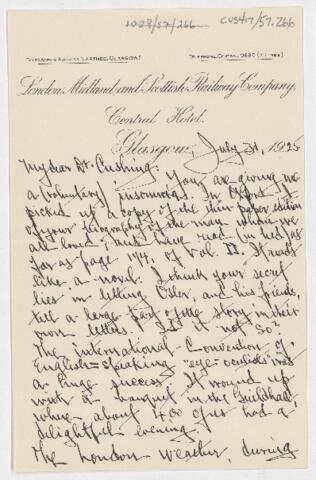 1023/57/266 CUS417/57.266
TELEGRAPHIC ADDRESS
London Midland and Scottish Railway Company,
Central Hotel.
Glasgow. July 31, 1925
My dear Dr. Cushing: You are giving me
a voluntary insomnia. In Oxford I
picked up a copy of the thin paper edition
of your biography of the man whom we
all loved; and have read (in bed) as
far as page 174, of Vol. II. It reads
like a novel. I think your secret
lies in letting Osler, and his friends,
tell a large part of the story in their
own letters. Is it not so?
The international Convention of
English-speaking "eye-oculists" was
a huge success. It wound up
with a banquet in the Guildhall
where about 400 of us had a
delightful evening.
The London weather, during